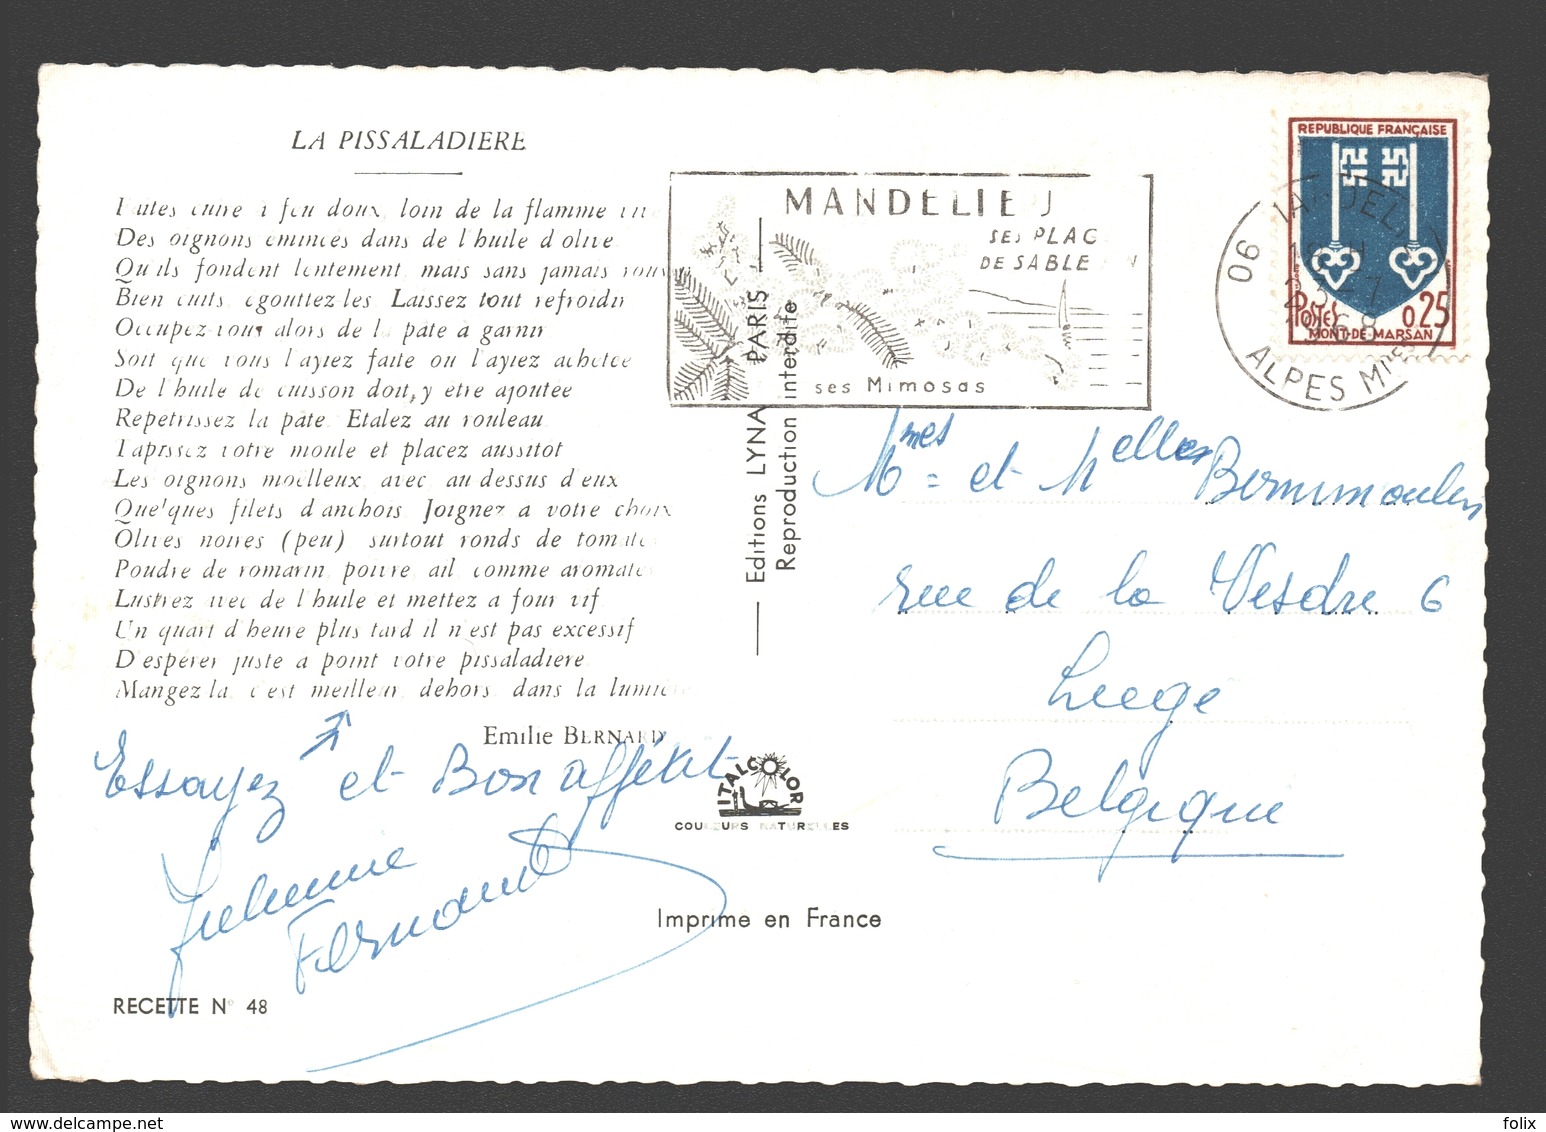 LA PISSALADIERE
Faites cuire à feu doux, loin de la flamme vive
Des oignons émincés dans de l'huile d'olive
Qu'ils fondent lentement, mais sans jamais roussir
Bien cuits, égouttez-les Laissez tout refroidir
Occupez-vous alors de la pâte à garnir
Soit que vous l'ayiez faite ou l'ayiez achetée
De l'huile de cuisson doit, y être ajoutée
Repétrissez la pâte. Etalez au rouleau
Tapissez votre moule et placez aussitôt
Les oignons moëlleux, avec, au dessus d'eux
Quelques filets d'anchois Joignez à votre choix
Olives noires (peu), surtout ronds de tomate
Poudre de romarin, poivre, ail, comme aromate
Lustrez avec de l'huile et mettez à four vif
Un quart d'heure plus tard il n'est pas excessif
D'espérer juste à point votre pissaladière
Mangez la, c'est meilleur, dehors, dans la lumière
Emilie BERNARD
Essayez et Bon appétit
Julienne
Fernand
RECETTE N° 48
Editions LYNA PARIS
Reproduction interdite
ITALCOLOR
COULEURS NATURELLES
Imprimé en France
MANDELIEU
SES PLAG
DE SABLE FIN
ses Mimosas
REPUBLIQUE FRANÇAISE
POSTES 0,25
MONT-DE-MARSAN
06 MANDELIEU
18 H
23-7
1968
ALPES MMES
Mmes et Melles Bernimoulin
rue de la Vesdre 6
Liège
Belgique